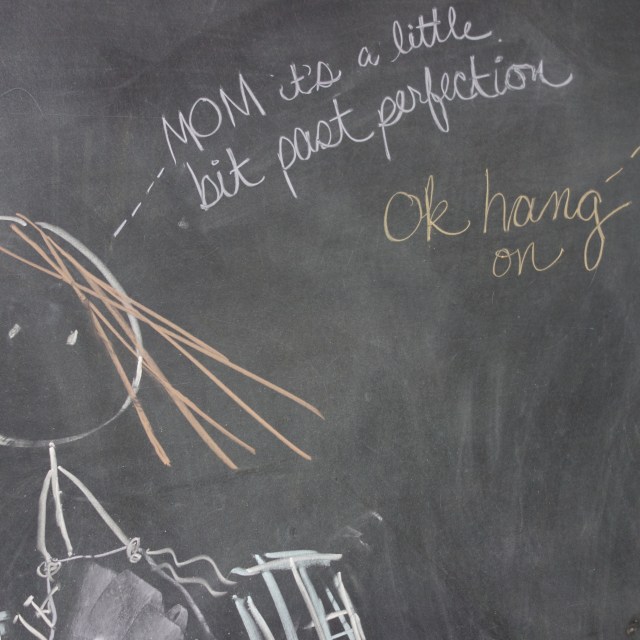 MOM it's a little
bit past perfection
Ok hang
on